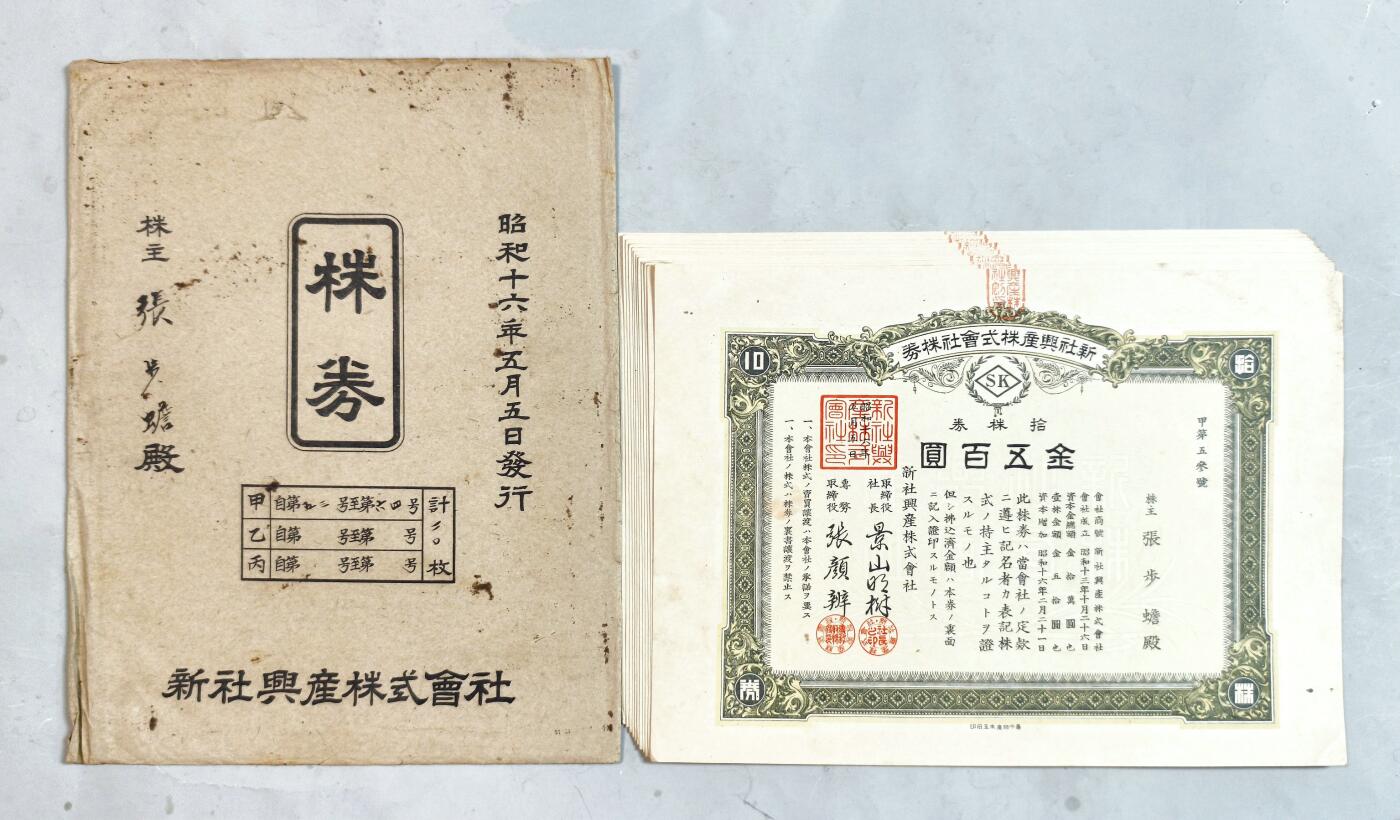 昭和十六年五月五日發行
株券
株主 張步蟾殿
計二〇枚
甲 自第 号至第六四号
乙 自第 号至第 号
丙 自第 号至第 号
新社興産株式會社
新社興産株式會社株券
SK
拾
株
券
拾株券
金五百圓
甲第五參號
株主 張步蟾殿
會社商號 新社興産株式會社
會社成立 昭和十三年十月二十六日
資本金總額 金拾萬圓也
壹株金額 金五拾圓也
資本增加 昭和十六年二月二十一日
此株券ハ當會社ノ定款
ニ遵ヒ記名者カ表記株
式ノ持主タルコトヲ證
スルモノ也
但シ拂込濟金額ハ本券ノ裏面
ニ記入證印スルモノトス
新社興産株式會社
取締役社長 景山明樹
專務取締役 張顔辨
一、本會社株式ノ賣買讓渡ハ本會社ノ承諾ヲ要ス
一、本會社ノ株式ハ株券ノ裏書讓渡ヲ禁止ス
新社興産株式會社印